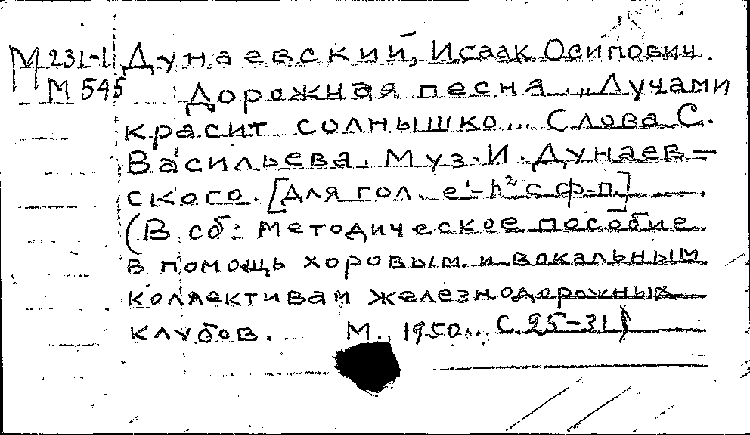 М 231-1 Дунаевский, Исаак Осипович.
М 545 Дорожная песня. „Лучами
красит солнышко... Слова С.
Васильева. Муз. И. Дунаев-
ского. [Для гол. e¹-h² с ф-п.]
(В сб: Методическое пособие
в помощь хоровым и вокальным
коллективам железнодорожных
клубов. М., 1950. С. 25-31)